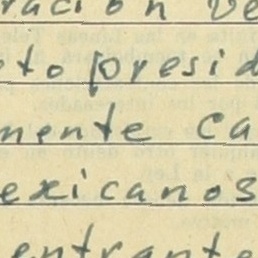 ración ve
to presid
mente ca
exicanos
entrante